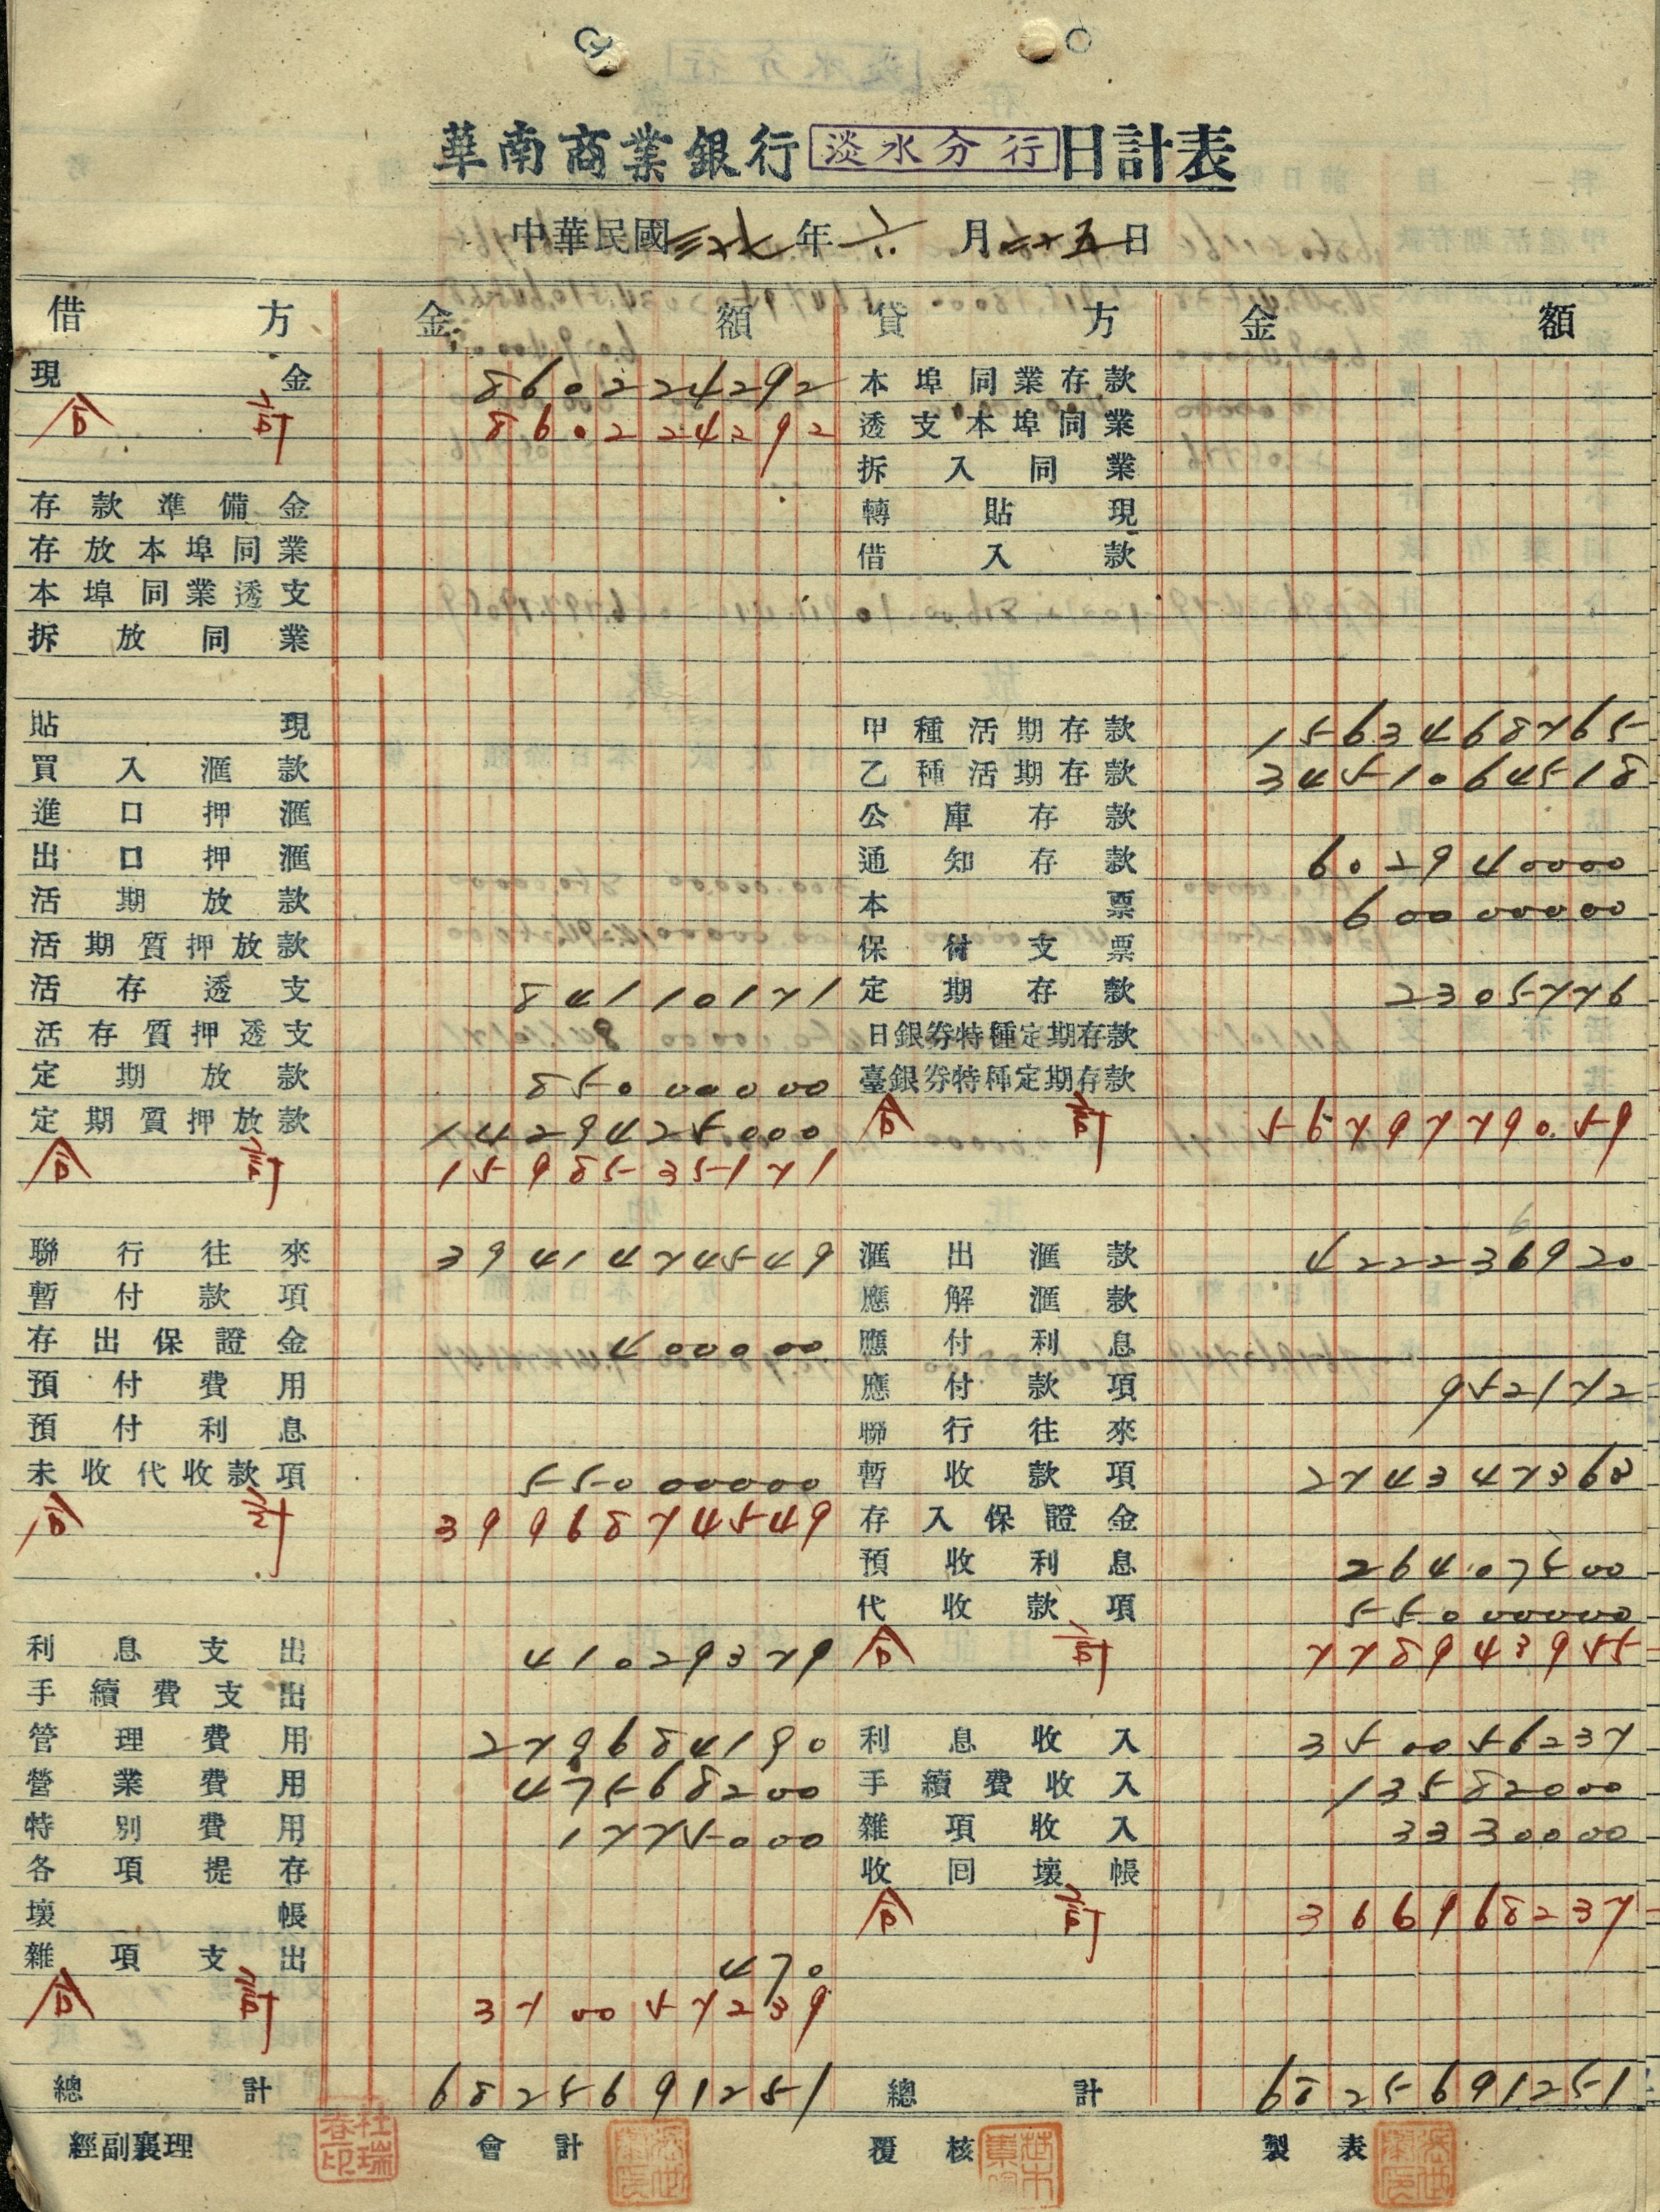 華南商業銀行 淡水分行 日計表
中華民國三十七年六月二十五日
借方 金額 貸方 金額
現金 860224292 本埠同業存款
合計 860224292 透支本埠同業
拆入同業
存款準備金 轉貼現
存放本埠同業 借入款
本埠同業透支
拆放同業
貼現 甲種活期存款 1563468765
買入滙款 乙種活期存款 3451064518
進口押滙 公庫存款
出口押滙 通知存款 602940000
活期放款 本票 60000000
活期質押放款 保付支票
活存透支 84110171 定期存款 2305776
活存質押透支 日銀券特種定期存款
定期放款 85000000 臺銀券特種定期存款
定期質押放款 1429425000 合計 5679779059
合計 1598535171
聯行往來 3941474549 滙出滙款 422236920
暫付款項 應解滙款
存出保證金 400000 應付利息
預付費用 應付款項 952172
預付利息 聯行往來
未收代收款項 55000000 暫收款項 274347363
合計 3996874549 存入保證金
預收利息 26407500
代收款項 55000000
利息支出 41029379 合計 778943955
手續費支出
管理費用 279684190 利息收入 350056237
營業費用 47568200 手續費收入 13582000
特別費用 1775000 雜項收入 3330000
各項提存 收回壞帳
壞帳 合計 366968237
雜項支出 470
合計 370057239
總計 6825691251 總計 6825691251
經副襄理 杜瑞春印 會計 覆核 製表